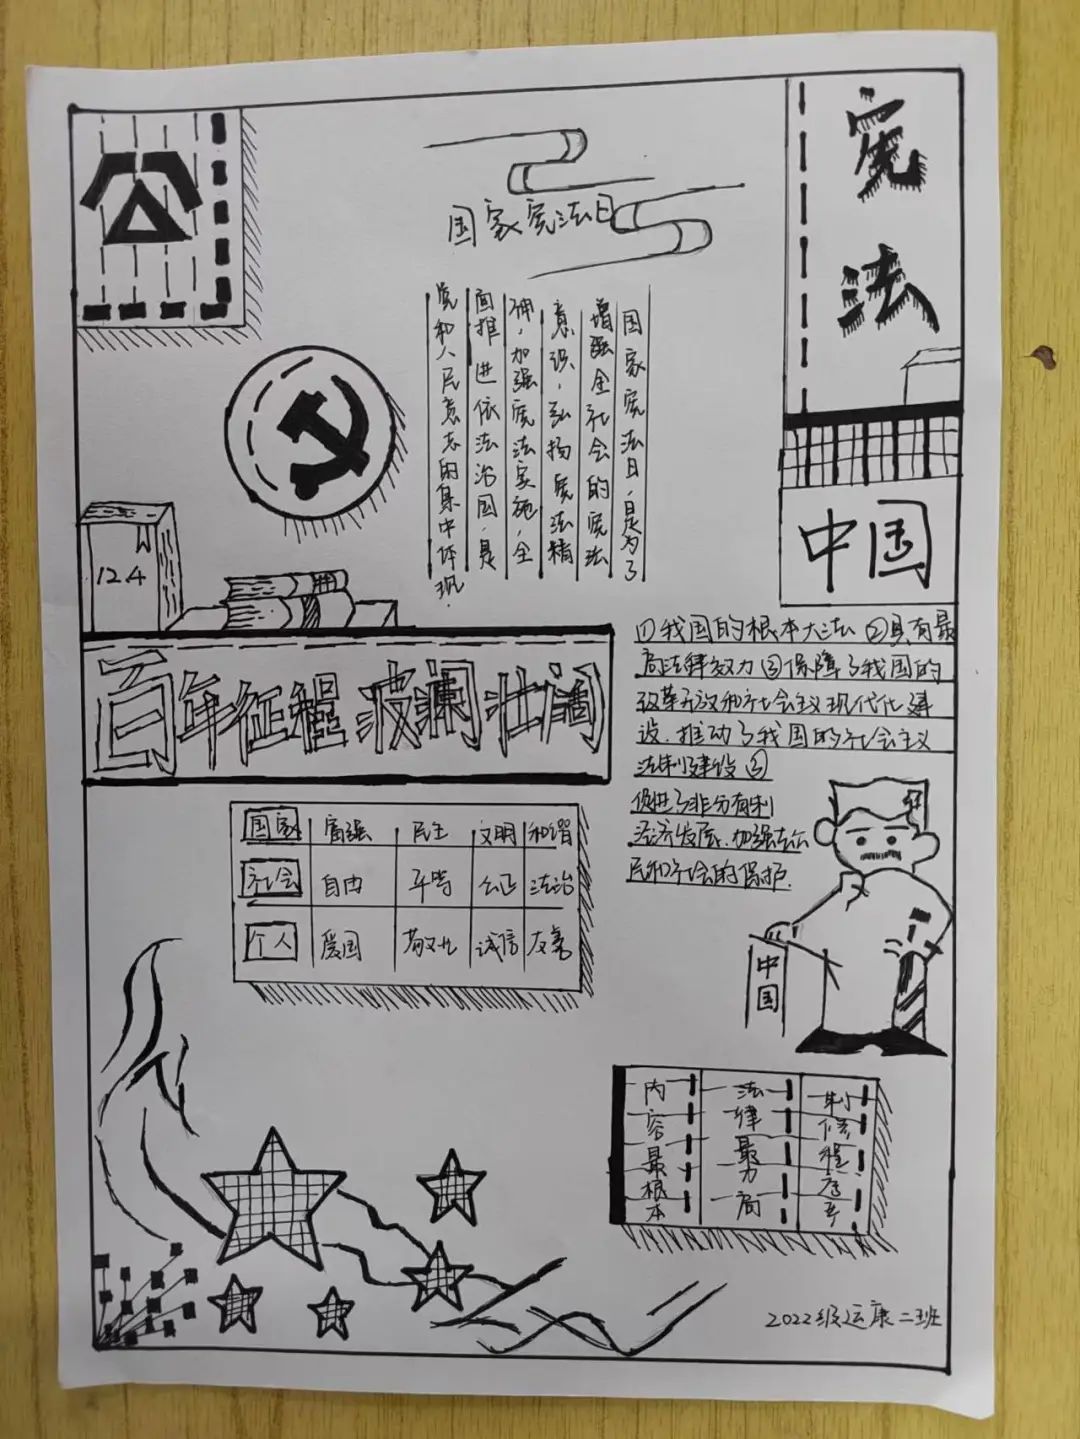 公
国家宪法日
宪
法
国家宪法日,是为了
增强全社会的宪法
意识,弘扬宪法精
神,加强宪法实施,全
面推进依法治国,是
党和人民意志的集中体现.
124
中国
百年征程 波澜壮阔
①我国的根本大法 ②具有最
高法律效力 ③保障了我国的
改革开放和社会主义现代化建
设.推动了我国的社会主义
法制建设 ④
促进了非公有制
经济发展.加强
民和社会的保护.
国家 富强 民主 文明 和谐
社会 自由 平等 公正 法治
个人 爱国 敬业 诚信 友善
中国
内容最根本
法律最力高
制修程序
2022级运康二班